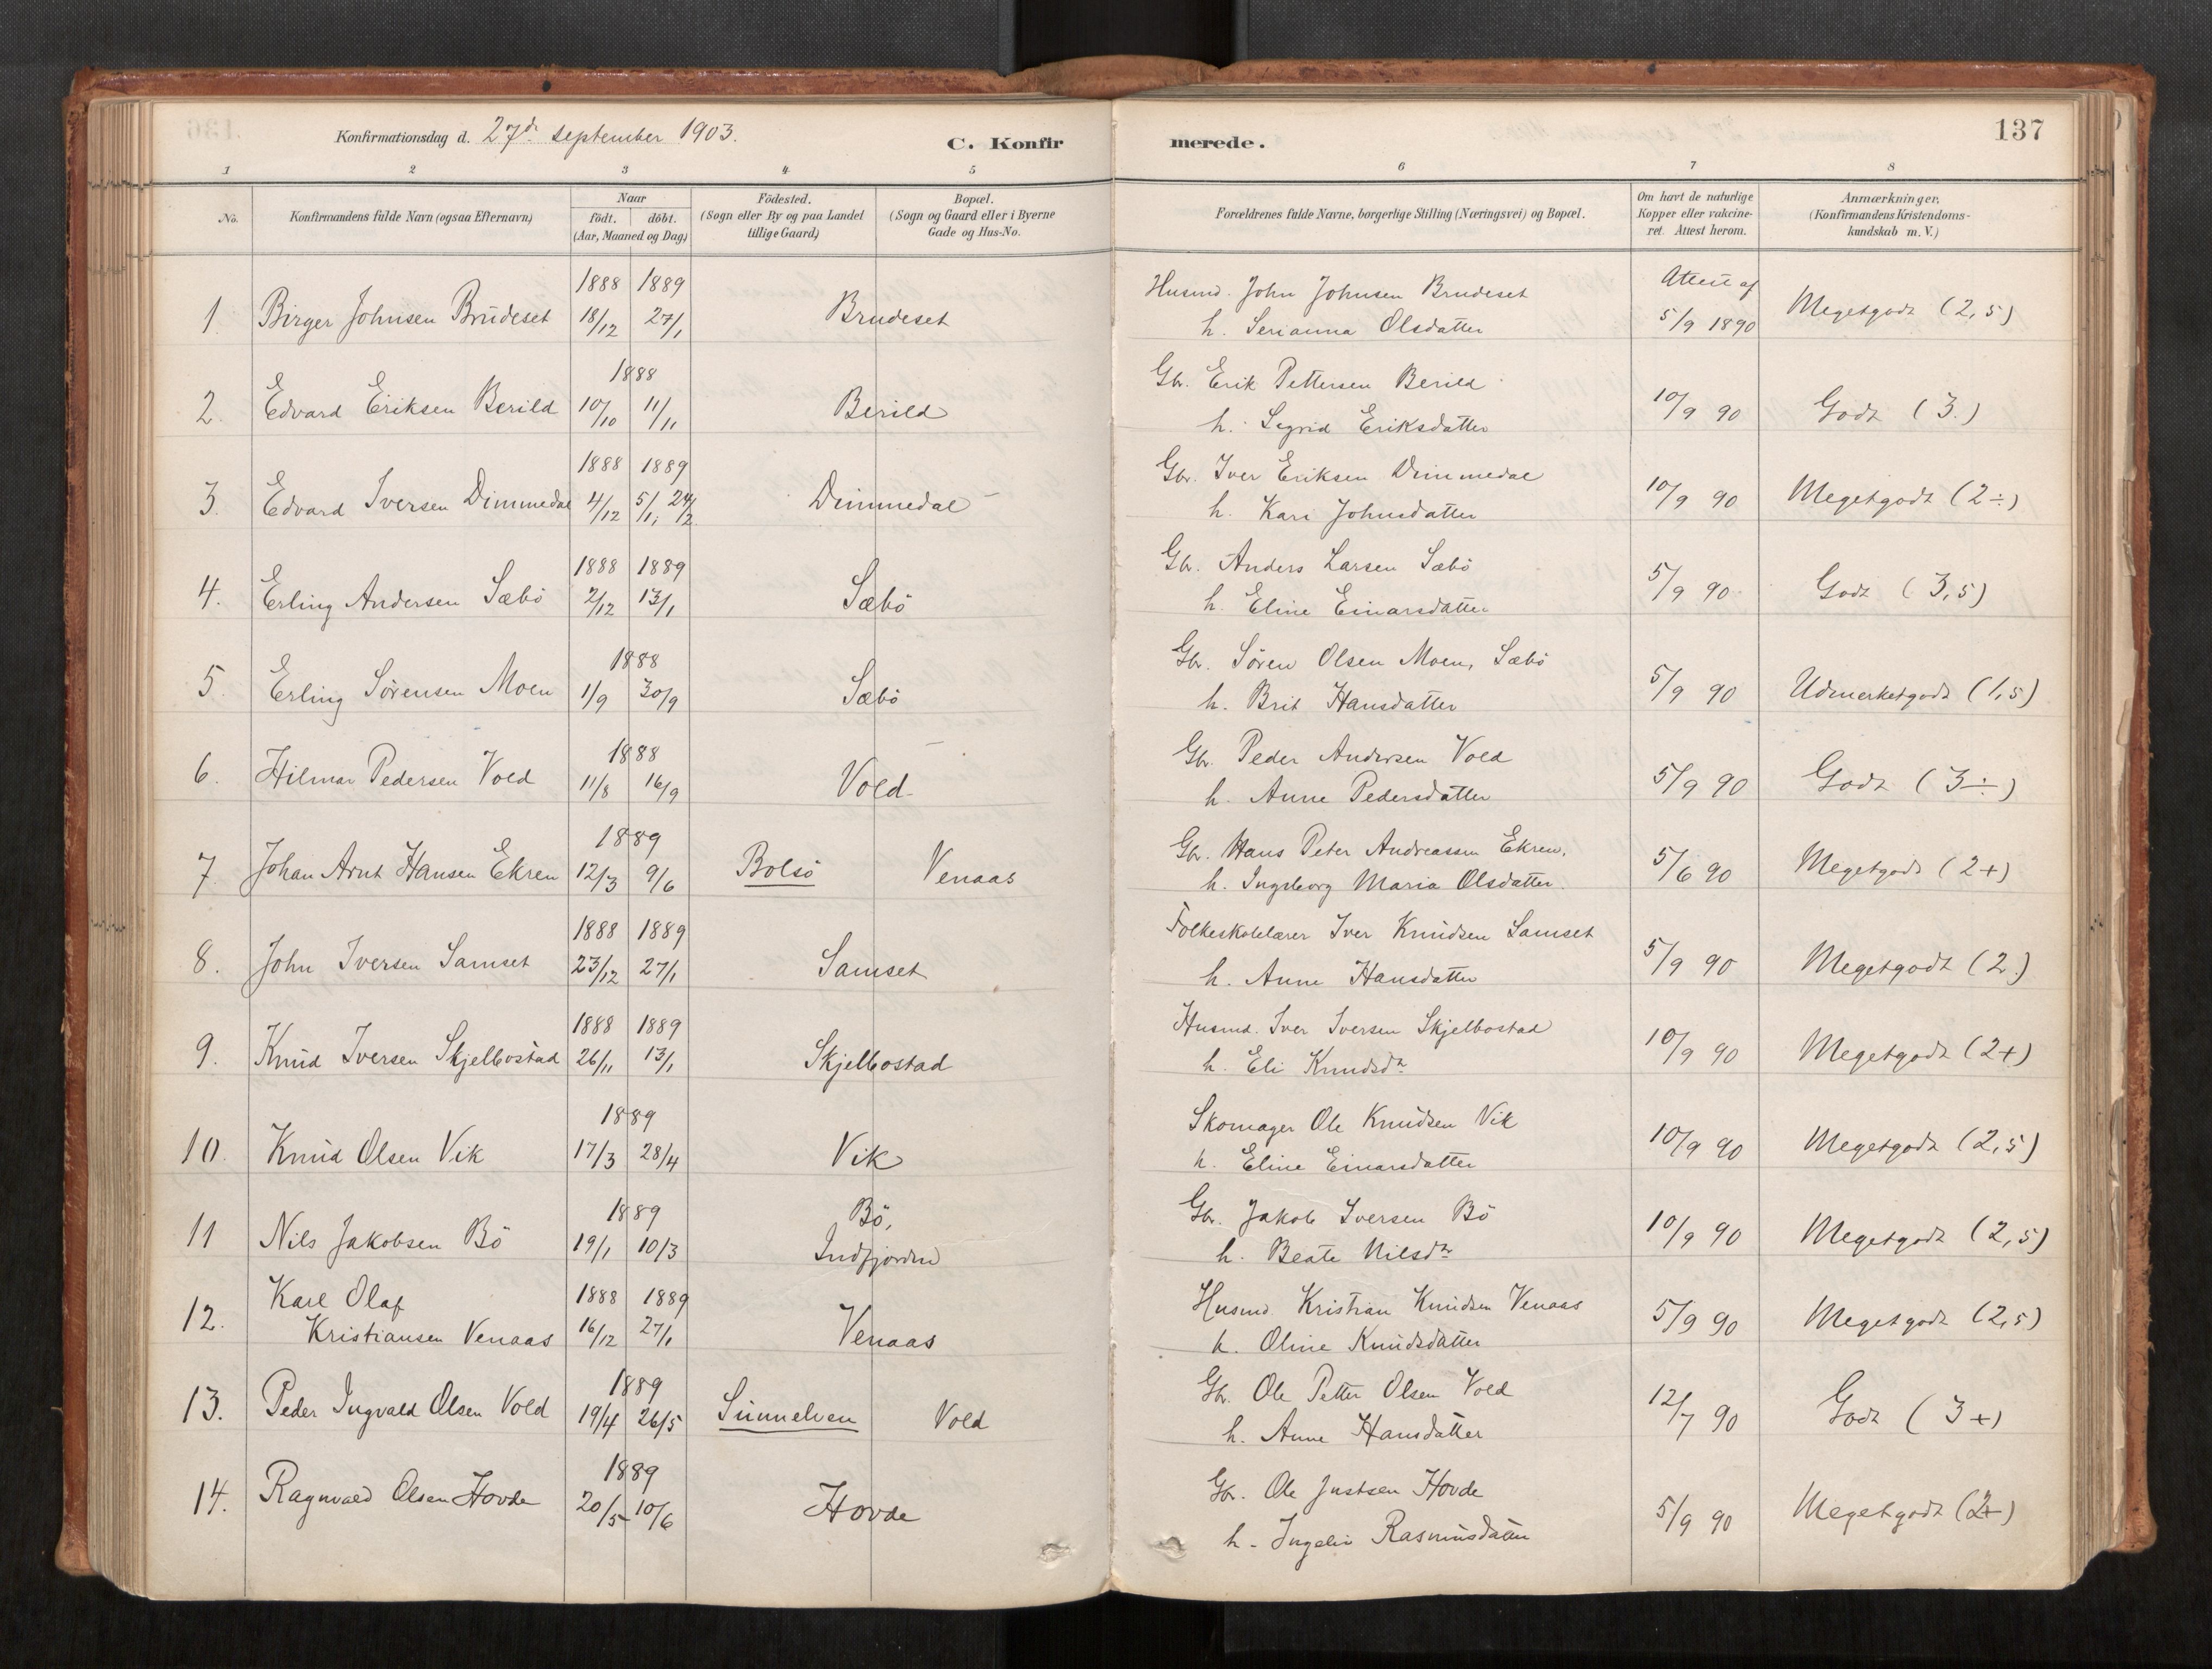 Konfirmationsdag d. 27de september 1903.
C. Konfirmerede.
137
1 2 3 4 5 6 7 8
No.
Konfirmandens fulde Navn (ogsaa Efternavn)
Naar
födt. döbt.
(Aar, Maaned og Dag)
Födested.
(Sogn eller By og paa Landet
tillige Gaard)
Bopæl.
(Sogn og Gaard eller i Byerne
Gade og Hus-No.
Forældrenes fulde Navne, borgerlige Stilling (Næringsvei) og Bopæl.
Om havt de naturlige
Kopper eller vakcine-
ret. Attest herom.
Anmærkninger,
(Konfirmandens Kristendoms-
kundskab m. V.)
1888 1889
1. Birger Johnsen Brudeset 18/12 27/1 Brudeset
Husmd. John Johnsen Brudeset
h. Serianna Olsdatter
Attest af
5/9 1890
Megetgodt (2,5)
1888
2. Edvard Eriksen Berild 10/10 11/11 Berild
Gbr. Erik Pettersen Berild
h. Sigrid Eriksdatter
10/9 90 Godt (3.)
1888 1889
3. Edvard Iversen Dimmedal 4/12 5/1; 24/2 Dimmedal
Gbr. Iver Eriksen Dimmedal
h. Kari Johnsdatter
10/9 90 Megetgodt (2÷)
1888 1889
4. Erling Andersen Sæbö 2/12 13/1 Sæbö
Gbr. Anders Larsen Sæbö
h. Eline Einarsdatter
5/9 90 Godt (3,5)
1888
5. Erling Sörensen Moen 1/9 30/9 Sæbö
Gbr. Sören Olsen Moen, Sæbö
h. Brit Hansdatter
5/9 90 Udmerketgodt (1,5)
1888
6. Hilmar Pedersen Vold 11/8 16/9 Vold
Gbr. Peder Andersen Vold
h. Anne Pedersdatter
5/9 90 Godt (3÷)
1889
7. Johan Arnt Hansen Ekren 12/3 9/6 Bolsö Venaas
Gbr. Hans Peter Andreassen Ekren,
h. Ingeborg Maria Olsdatter.
5/6 90 Megetgodt (2+)
1888 1889
8. John Iversen Samset 23/12 27/1 Samset
Folkeskolelærer Iver Knudsen Samset
h. Anne Hansdatter
5/9 90 Megetgodt (2.)
1888 1889
9. Knud Iversen Skjelbostad 26/11 13/1 Skjelbostad
Husmd. Iver Iversen Skjelbostad
h. Eli Knudsdr.
10/9 90 Megetgodt (2+)
1889
10. Knud Olsen Vik 17/3 28/4 Vik
Skomager Ole Knudsen Vik
h. Eline Einarsdatter
10/9 90 Megetgodt (2,5)
1889 Bö,
11 Nils Jakobsen Bö 19/1 10/3 Indfjorden
Gbr. Jakob Iversen Bö
h. Beate Nilsdr.
10/9 90 Megetgodt (2,5)
Karl Olaf 1888 1889
12. Kristiansen Venaas 16/12 27/1 Venaas
Husmd. Kristian Knudsen Venaas
h. Oline Knudsdatter
5/9 90 Megetgodt (2,5)
1889
13. Peder Ingvald Olsen Vold 19/4 26/5 Sunnelven Vold
Gbr. Ole Petter Olsen Vold
h. Anne Hansdatter
12/7 90 Godt (3+)
1889
14. Ragnvald Olsen Hovde 20/5 10/6 Hovde
Gbr. Ole Justsen Hovde
h. Ingeliv Rasmusdatter
5/9 90 Megetgodt (2+)